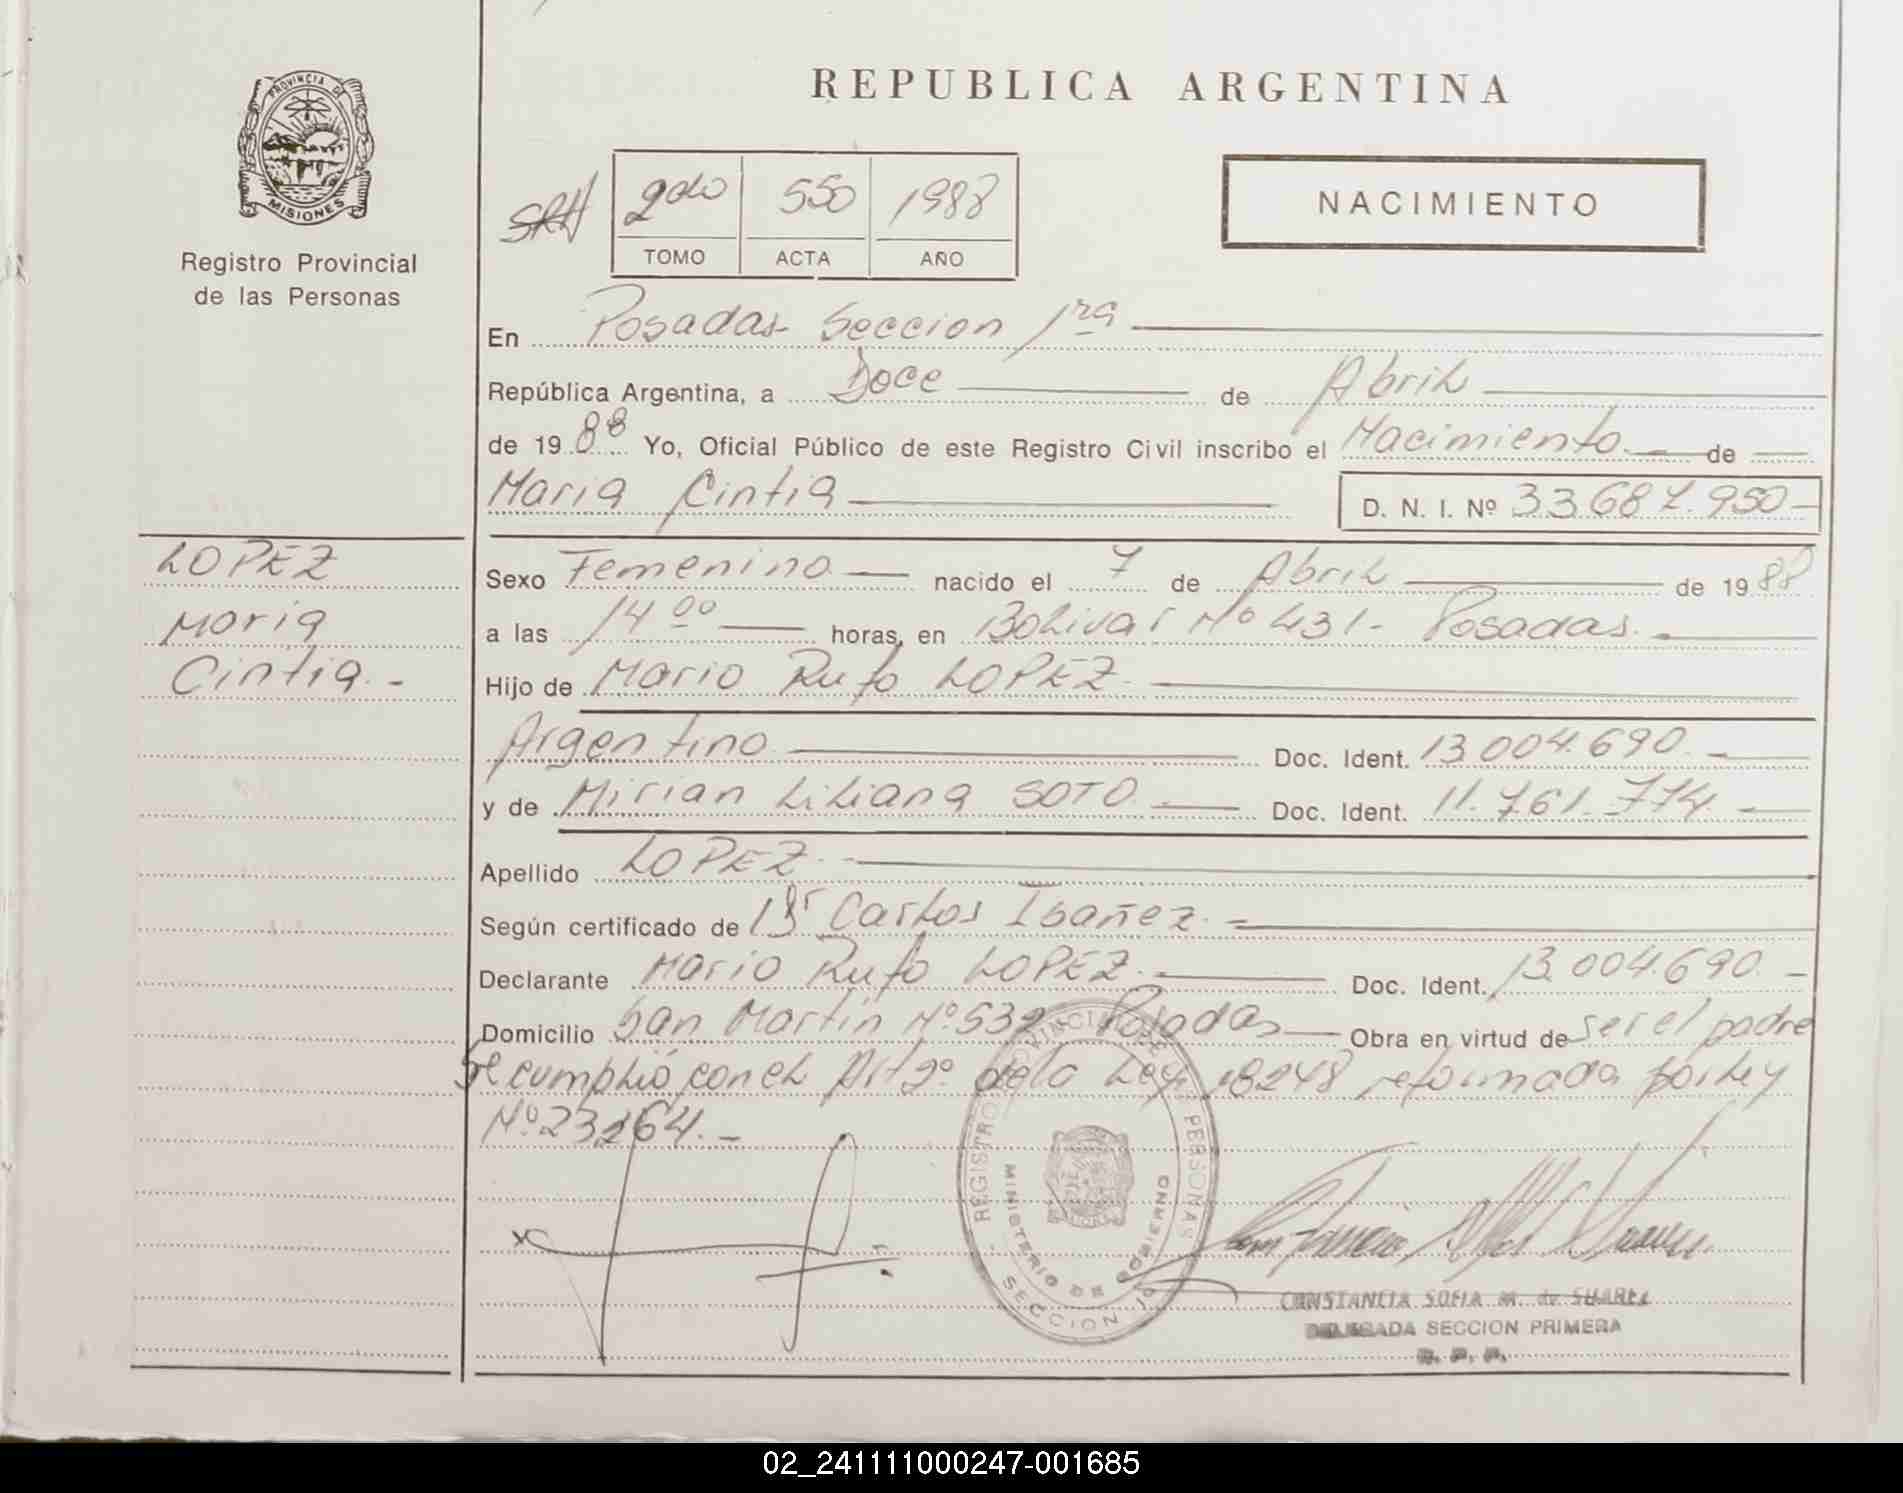 PROVINCIA DE
MISIONES
Registro Provincial
de las Personas
REPUBLICA ARGENTINA
2do 550 1988
TOMO ACTA AÑO
NACIMIENTO
En Posadas Seccion 1ra
República Argentina, a Doce de Abril
de 1988 Yo, Oficial Público de este Registro Civil inscribo el Nacimiento de
Maria Cintia D. N. I. Nº 33687.950-
LOPEZ
Maria
Cintia.-
Sexo Femenino nacido el 7 de Abril de 1988
a las 14 00 horas, en Bolivar Nº 431- Posadas.
Hijo de Mario Rufo LOPEZ.
Argentino Doc. Ident. 13.004.690.
y de Mirian Liliana SOTO. Doc. Ident. 11.761.774.
Apellido LOPEZ.
Según certificado de Dr Carlos Ibañez.
Declarante Mario Rufo LOPEZ. Doc. Ident. 13.004.690.
Domicilio San Martin Nº 532 Posadas Obra en virtud de ser el padre
Se cumplió con el Art 2º de la Ley 18248 reformada por Ley
Nº 23264.-
REGISTRO PROVINCIAL DE LAS PERSONAS
MINISTERIO DE GOBIERNO
SECCION 1º
CONSTANCIA SOFIA M. de SUAREZ
DELEGADA SECCION PRIMERA
R. P. P.
02_241111000247-001685